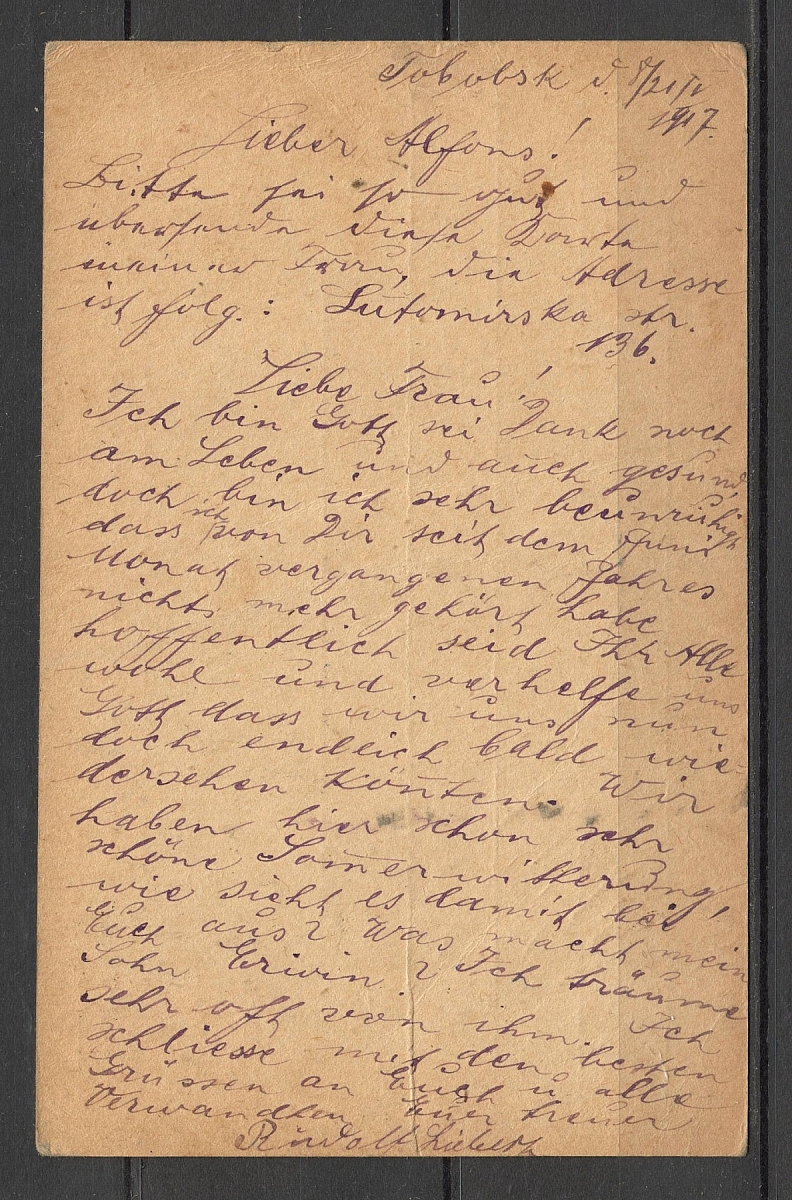 Tobolsk d. 8/21/V
1917.
Lieber Alfons!
Bitte sei so gut und
übersende diese Karte
meiner Frau, die Adresse
ist folg.: Lutomirska str.
136.
Liebe Frau!
Ich bin Gott sei Dank noch
am Leben und auch gesund,
doch bin ich sehr beunruhigt
dass ich von Dir seit dem Juni
Monat vergangenen Jahres
nichts mehr gehört habe
hoffentlich seid Ihr Alle
wohl und verhelfe uns
Gott dass wir uns nun
doch endlich bald wie-
dersehen könten. Wir
haben hier schon sehr
schöne Somerwitterung,
wie sieht es damit bei
Euch aus? Was macht mein
Sohn Erwin? Ich träume
sehr oft von ihm. Ich
schliesse mit den besten
Grüssen an Euch u. alle
Verwandten Euer treuer
Rudolf